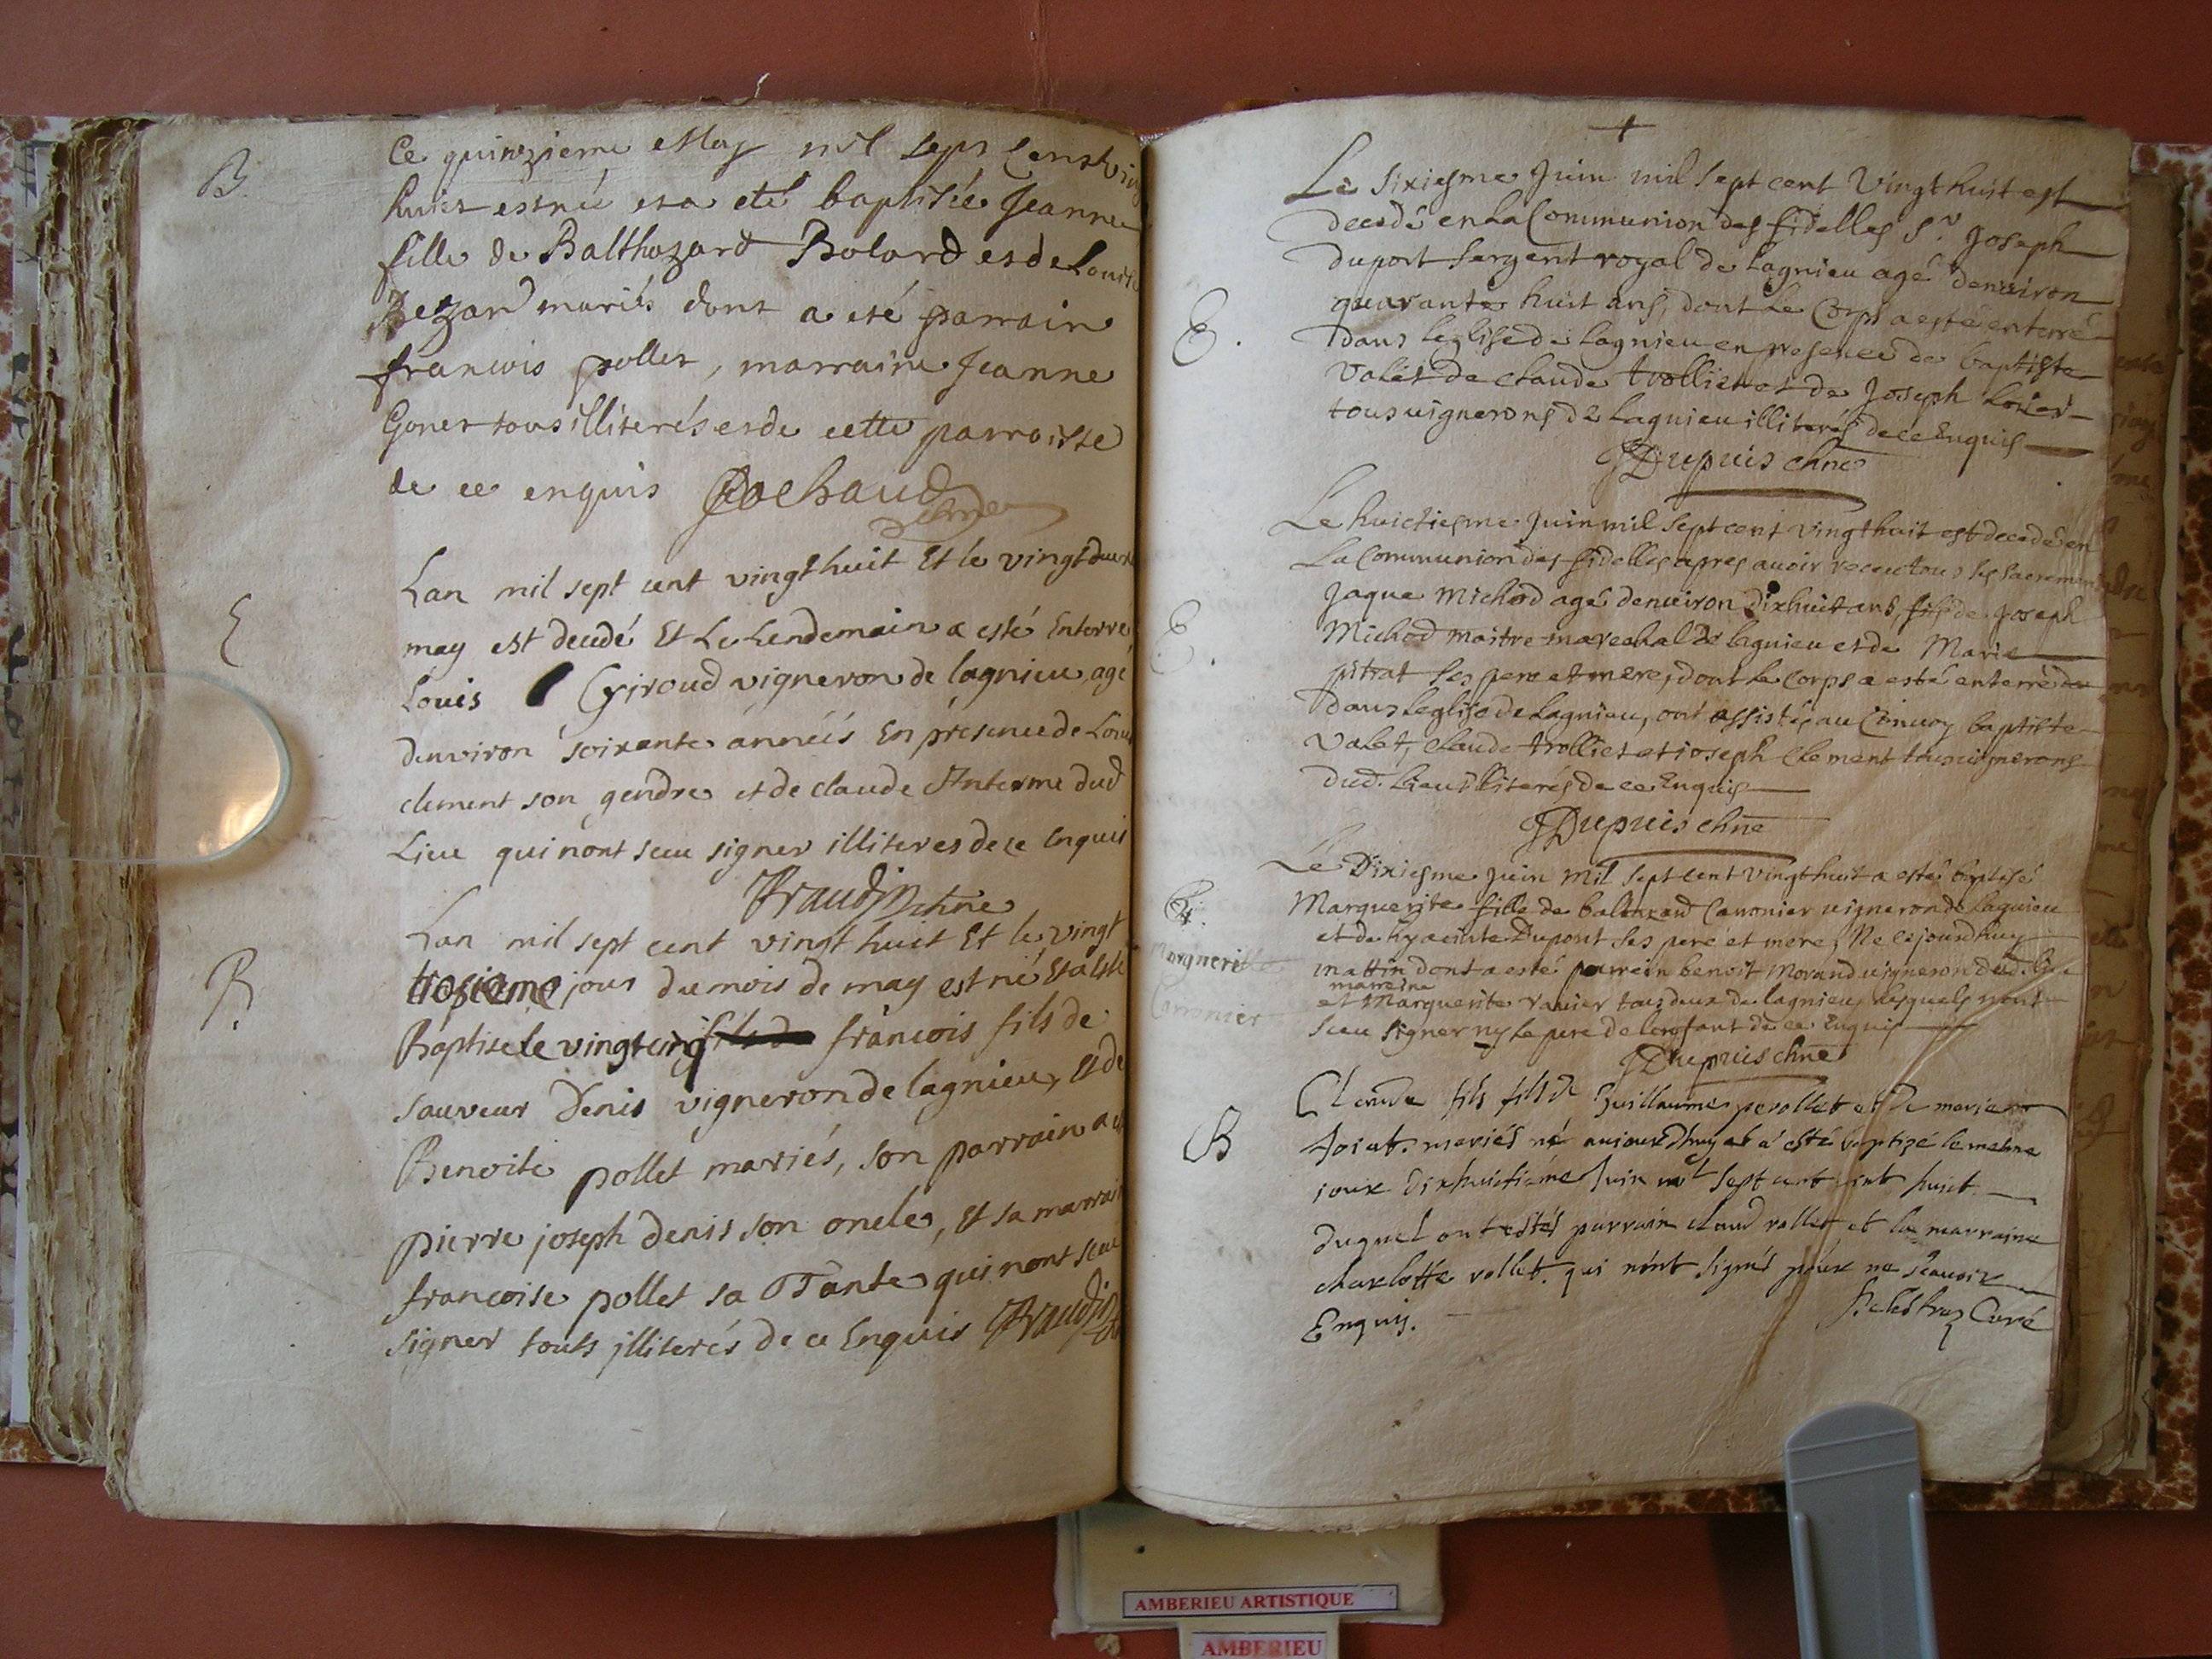 B.
Ce quinzieme May mil sept cens vin
huict est née et a eté baptisée Jeanne
fille de Balthazard Bolard et de Louise
mariés dont a eté parrain
francois pollet, marraine Jeanne
Gonet tous illiterés et de cette parroisse
de ce enquis Rochaud
E
Lan mil sept cent vingt huit Et le vingt
may est decedé Et Le Lendemain a esté Enterré
Louis Giroud vigneron de lagnieu agé
denviron soixante années En présence de Louis
clement son gendre et de claude Anterme dud
Lieu qui nont sceu signer illiteres de ce Enquis
Braudin chne
B.
Lan mil sept cent vingt huit Et le vingt
troisieme jour du mois de may est né Et a esté
Baptise le vingt cinq fils de francois fils de
sauveur Denis vigneron de lagnieu, Et de
Benoite pollet mariés, son parrain a
pierre joseph denis son oncle, Et sa marrain
francoise pollet sa Tante qui nont sceu
signer touts illiterés de ce Enquis Braudin
+
E.
Le sixiesme Juin mil sept cent vingt huit est
decedé en la Communion des fidelles Sr. Joseph
duport sergent royal de lagnieu agé denviron
quarante huit ans, dont le Corps a esté enterré
dans leglise de lagnieu en presence de baptiste
valet de claude trolliet et de Joseph
tous vignerons de Lagnieu illiterés de ce Enquis
JDupuis chne
E.
Le huictiesme Juin mil sept cent vingt huit est decedé en
La Communion des fidelles apres avoir receu tous les sacremens
Jaque Michod agé denviron dixhuit ans, fils de joseph
Michod maitre marechal de lagnieu et de Marie
pitrat ses pere et mere, dont le corps a esté enterré de
dans leglise de Lagnieu, ont assistés au Convoy baptiste
Valet, claude trolliet et joseph Clement tous vignerons
dud. lieu illiterés de ce Enquis
JDupuis chne
B.
Marguerite
Carronier
Le Dixiesme juin mil sept cent vingt huit a esté baptisé
Marguerite fille de baltazard Carronier vigneron de lagnieu
et de hyacinte Dupont ses pere et mere, Ne cejourdhuy
mattin dont a esté parrein benoit Morand vigneron dud. lieu
marreine
et Marguerite ravier tous deux de lagnieu lesquels nont
sceu signer ny le pere de lenfant de ce Enquis
JDupuis chne
B
Claude fils fils de Guillaume perollet et de marie
mariés né aujourdhuy et a esté baptizé le mesme
jour dixhuictiéme Juin mil sept cent vint huict
duquel ont estés parrain claud rollet et la marraine
charlotte rollet. qui n'ont signés pour ne scavoir
Enquis.
Curé
AMBERIEU ARTISTIQUE
AMBERIEU